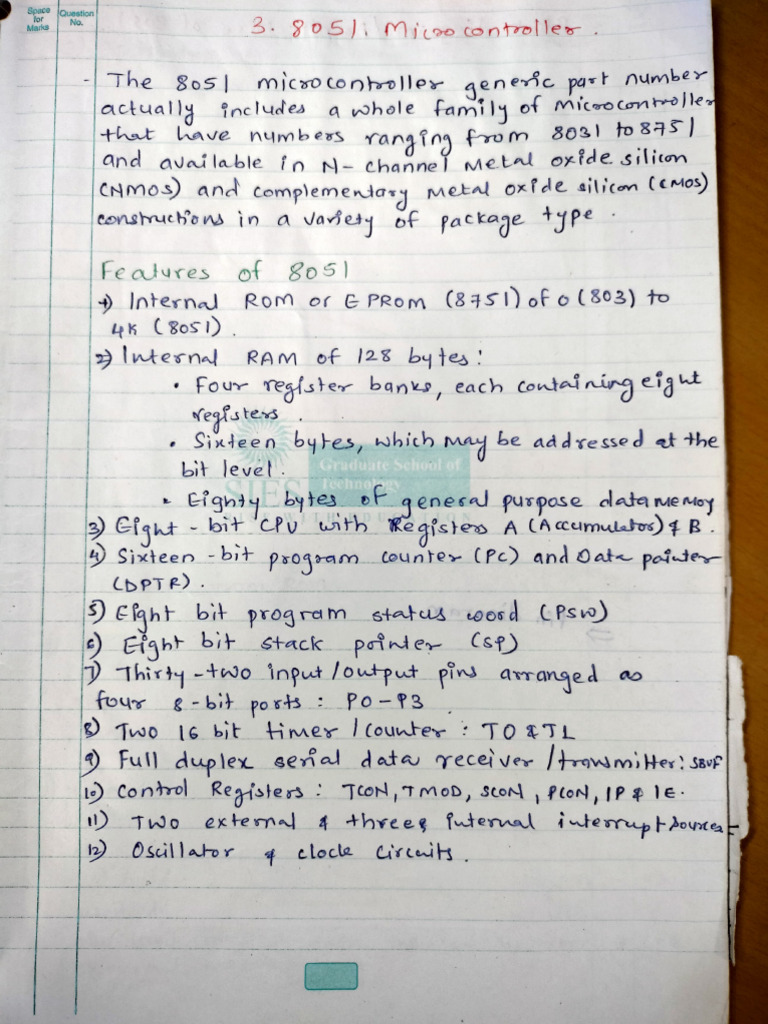 Space for Marks
Question No.
3. 8051: Microcontroller.
- The 8051 microcontroller generic part number
actually includes a whole family of Microcontroller
that have numbers ranging from 8031 to 8751
and available in N-channel Metal oxide silicon
(NMOS) and complementary Metal oxide silicon (CMOS)
constructions in a variety of package type.
Features of 8051
1) Internal ROM or EPROM (8751) of 0 (803) to
4K (8051).
2) Internal RAM of 128 bytes:
• Four register banks, each containing eight
registers.
• Sixteen bytes, which may be addressed at the
bit level.
Graduate School of
Technology
SIES
• Eighty bytes of general purpose data memoy
3) Eight-bit CPU with Registers A (Accumulator) & B.
4) Sixteen-bit program counter (PC) and Data pointer
(DPTR).
5) Eight bit program status word (PSW)
6) Eight bit stack pointer (SP)
7) Thirty-two input/output pins arranged as
four 8-bit ports: P0-P3
8) Two 16 bit timer/counter: T0 & T1
9) Full duplex serial data receiver/transmitter: SBUF
10) Control Registers: TCON, TMOD, SCON, PCON, IP & IE.
11) Two external & three internal interrupt sources
12) Oscillator & clock circuits.